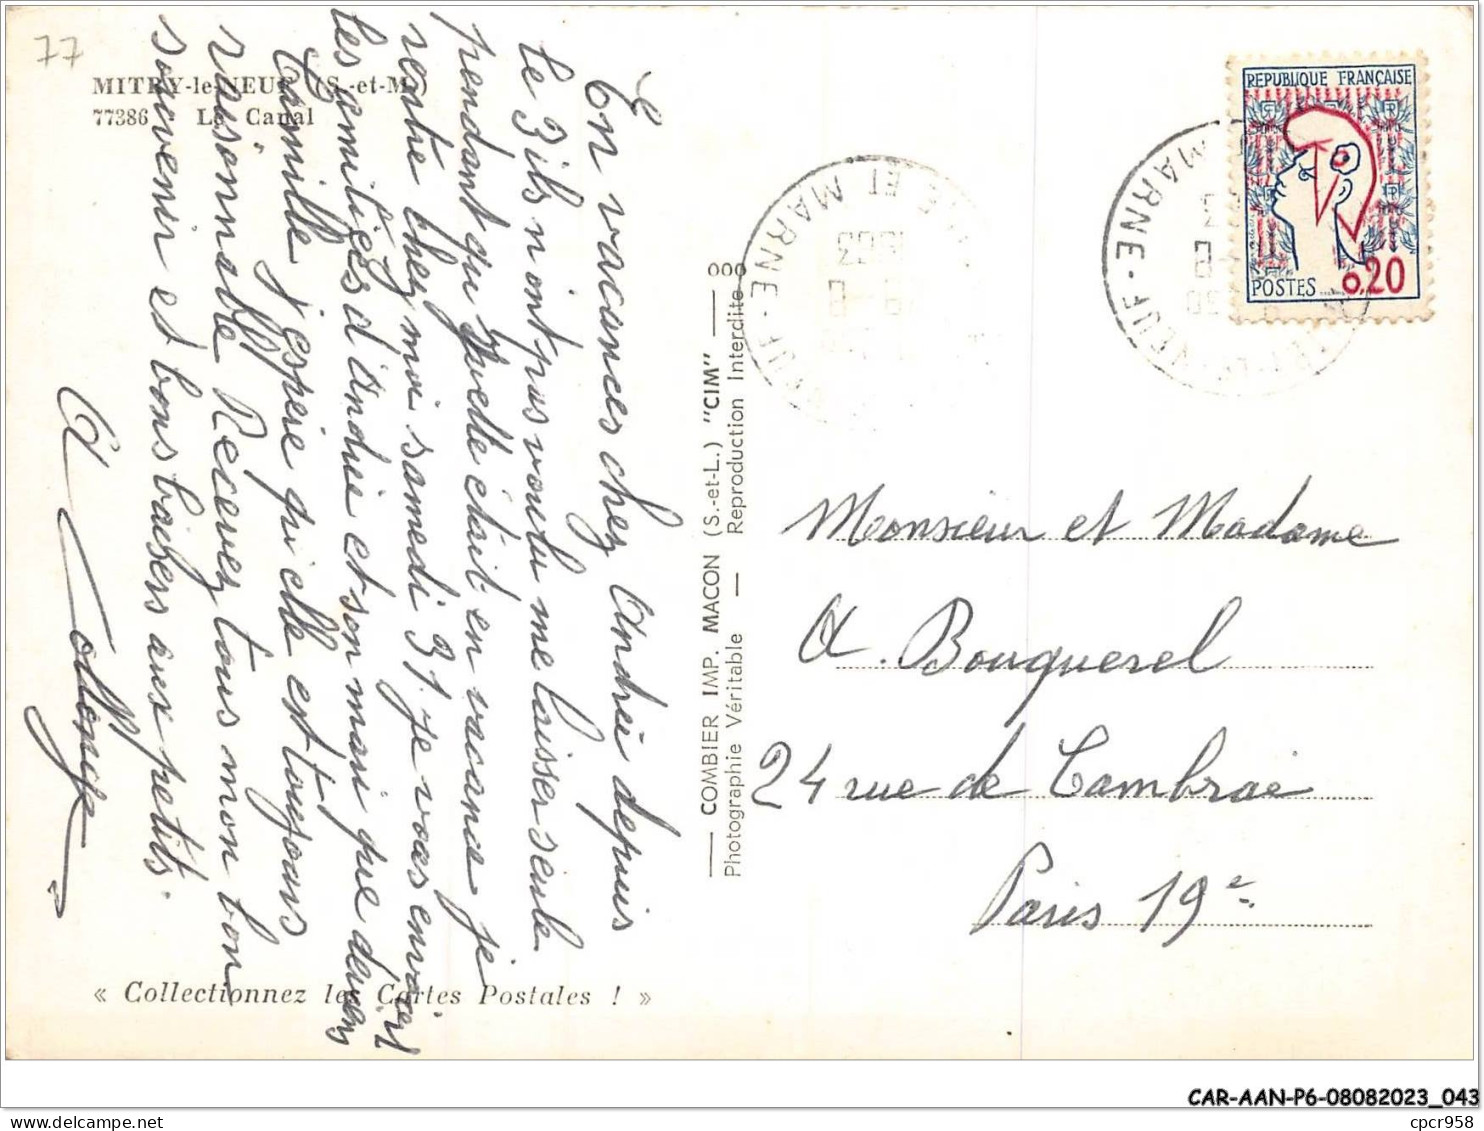 77
MITRY-le-NEUF (S.-et-M.)
77386 Le Canal
En vacances chez Andrée depuis
le 3 ils n ont pas voulu me laisser seule
pendant qu Yvette était en vacance je
reste chez moi samedi 31. je vous envoies
les amitiées d'Andrée et son mari que devient
Camille j'espère qu'elle est toujours
raisonnable Recevez tous mon bon
souvenir et bons baisers aux petits.
« Collectionnez les Cartes Postales ! »
COMBIER IMP. MACON (S.-et-L.) "CIM"
Photographie Véritable — Reproduction Interdite
000
ET MARNE
1963
REPUBLIQUE FRANÇAISE
POSTES
0,20
Monsieur et Madame
A. Bouquerel
24 rue de Cambrai
Paris 19e
CAR-AAN-P6-08082023_043
cpcr958